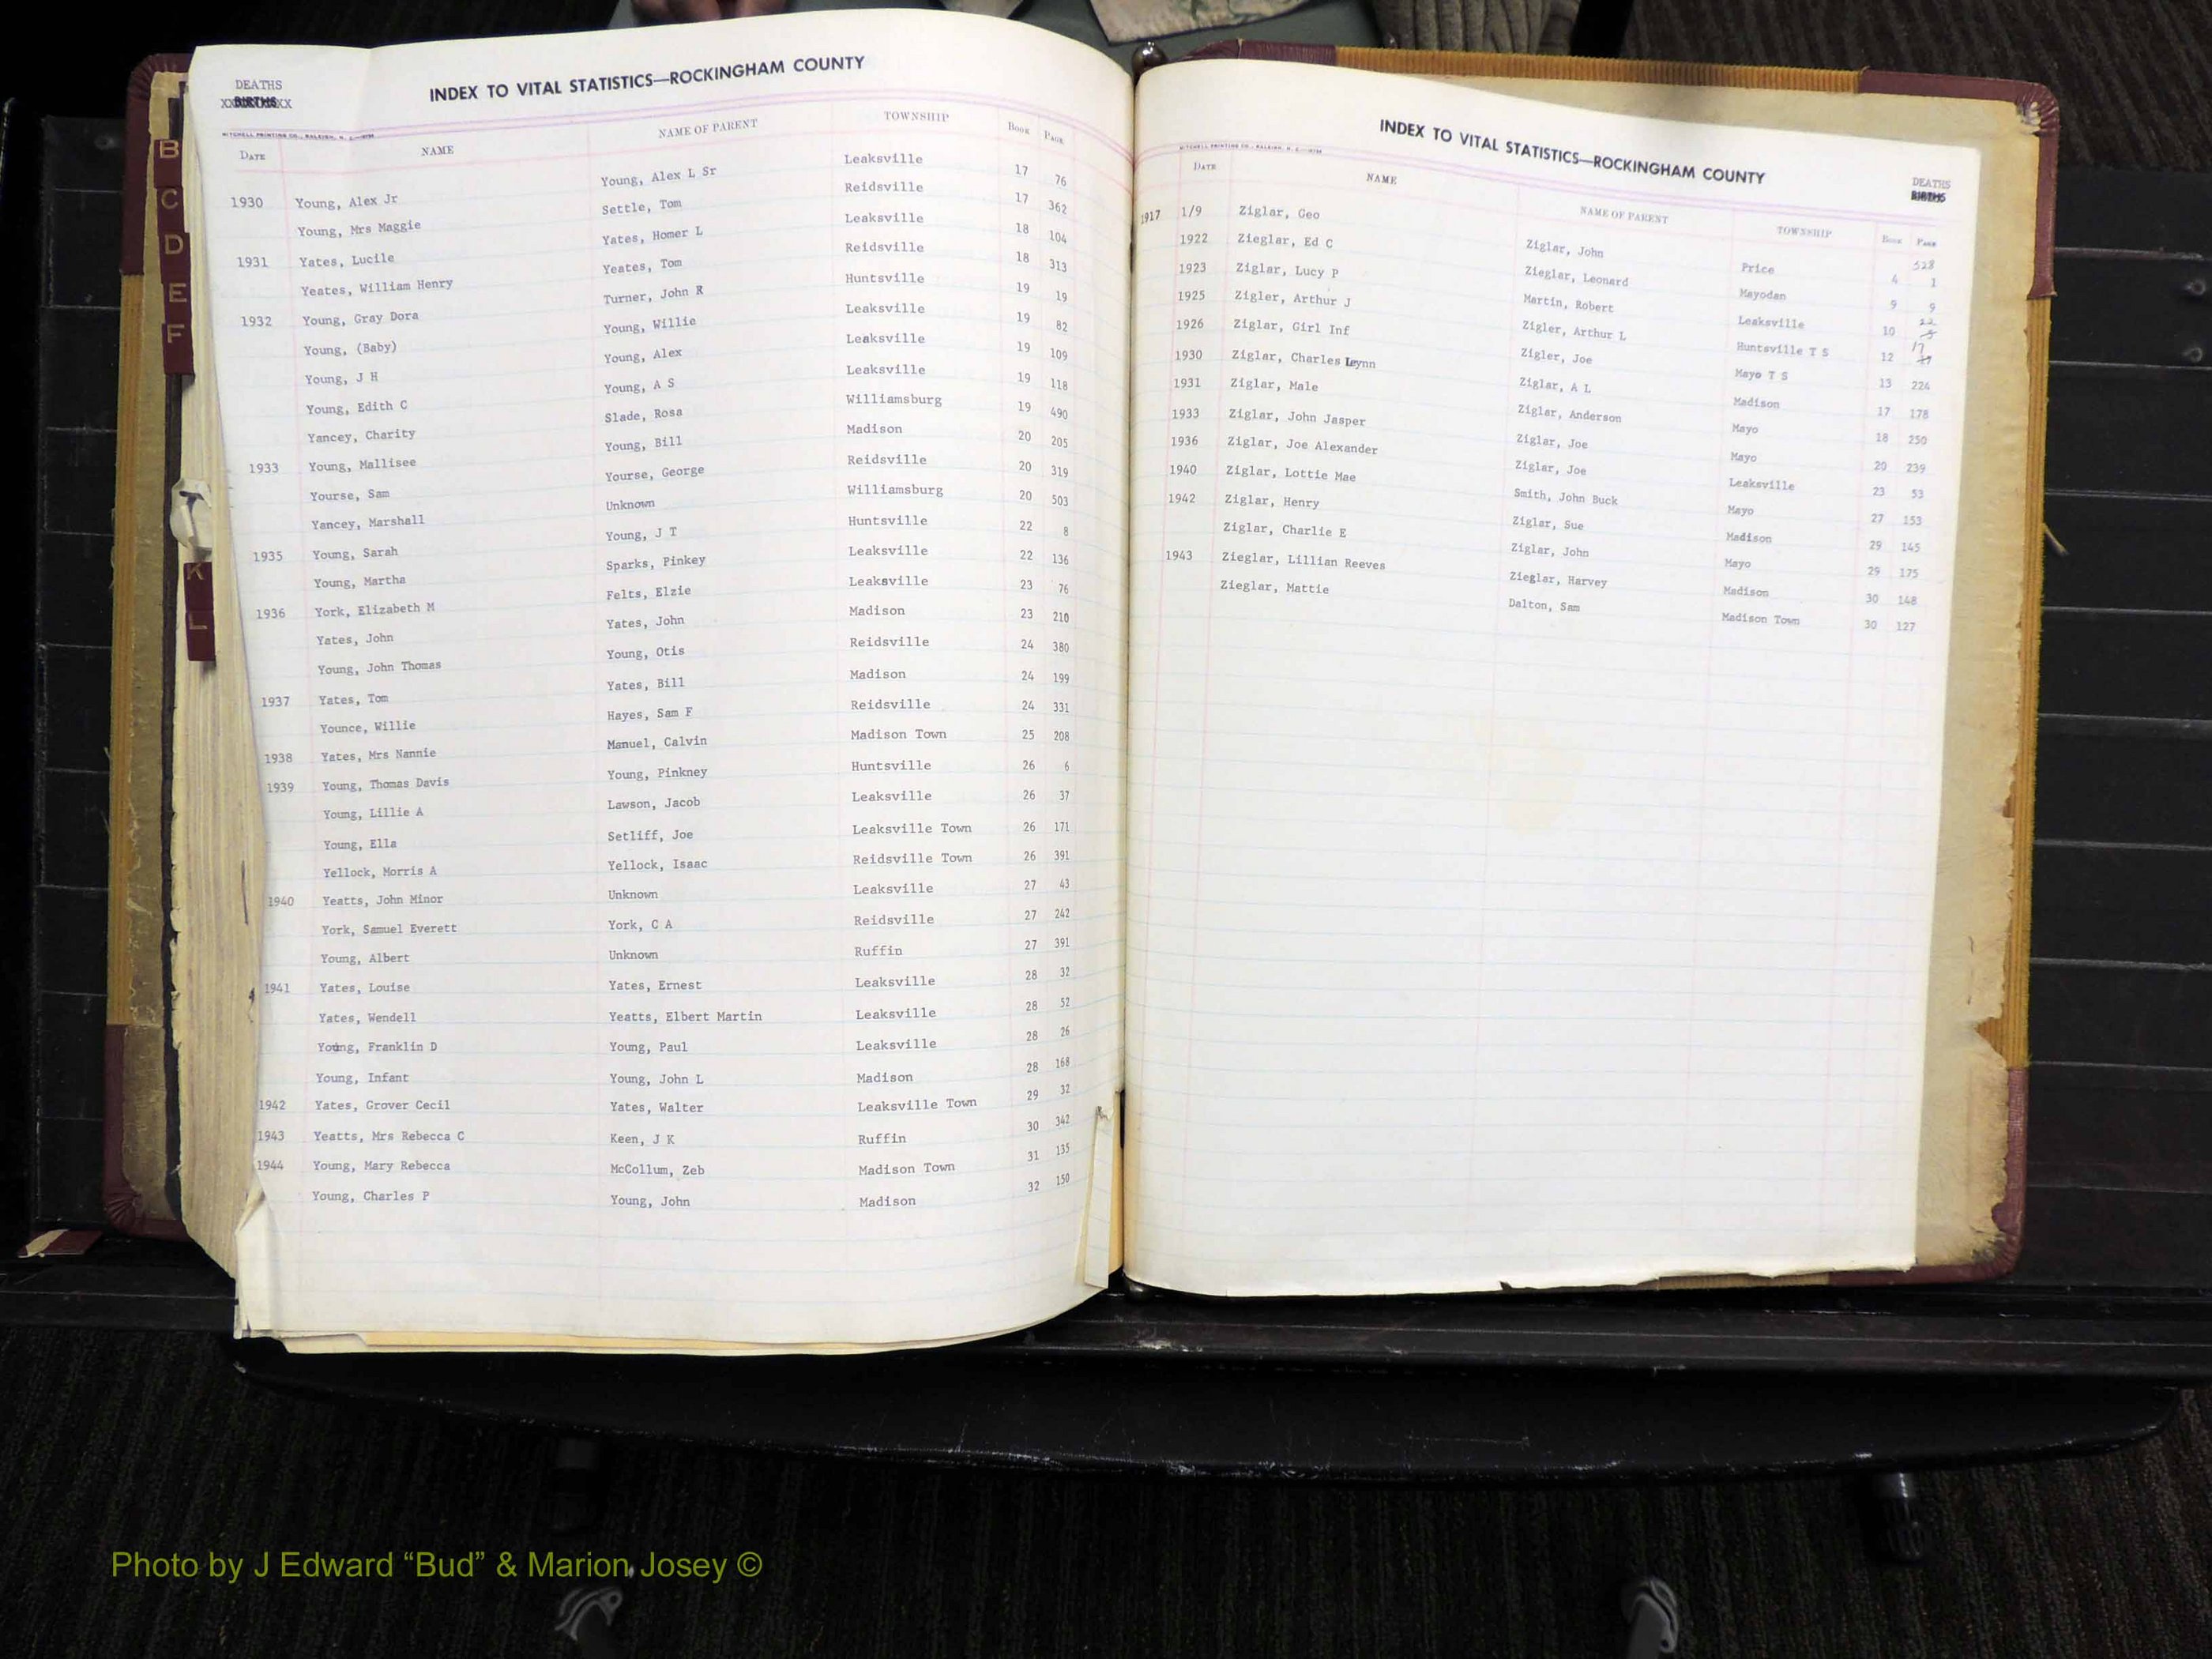 DEATHS
BIRTHS
INDEX TO VITAL STATISTICS—ROCKINGHAM COUNTY
MITCHELL PRINTING CO., RALEIGH, N. C.
DATE NAME NAME OF PARENT TOWNSHIP BOOK PAGE
1930 Young, Alex Jr Young, Alex L Sr Leaksville 17 76
Young, Mrs Maggie Settle, Tom Reidsville 17 362
1931 Yates, Lucile Yates, Homer L Leaksville 18 104
Yeates, William Henry Yeates, Tom Reidsville 18 313
1932 Young, Gray Dora Turner, John R Huntsville 19 19
Young, (Baby) Young, Willie Leaksville 19 82
Young, J H Young, Alex Leaksville 19 109
Young, Edith C Young, A S Leaksville 19 118
Yancey, Charity Slade, Rosa Williamsburg 19 490
1933 Young, Mallisee Young, Bill Madison 20 205
Yourse, Sam Yourse, George Reidsville 20 319
Yancey, Marshall Unknown Williamsburg 20 503
1935 Young, Sarah Young, J T Huntsville 22 8
Young, Martha Sparks, Pinkey Leaksville 22 136
1936 York, Elizabeth M Felts, Elzie Leaksville 23 76
Yates, John Yates, John Madison 23 210
Young, John Thomas Young, Otis Reidsville 24 380
1937 Yates, Tom Yates, Bill Madison 24 199
Younce, Willie Hayes, Sam F Reidsville 24 331
1938 Yates, Mrs Nannie Manuel, Calvin Madison Town 25 208
1939 Young, Thomas Davis Young, Pinkney Huntsville 26 6
Young, Lillie A Lawson, Jacob Leaksville 26 37
Young, Ella Setliff, Joe Leaksville Town 26 171
Yellock, Morris A Yellock, Isaac Reidsville Town 26 391
1940 Yeatts, John Minor Unknown Leaksville 27 43
York, Samuel Everett York, C A Reidsville 27 242
Young, Albert Unknown Ruffin 27 391
1941 Yates, Louise Yates, Ernest Leaksville 28 32
Yates, Wendell Yeatts, Elbert Martin Leaksville 28 52
Young, Franklin D Young, Paul Leaksville 28 26
Young, Infant Young, John L Madison 28 168
1942 Yates, Grover Cecil Yates, Walter Leaksville Town 29 32
1943 Yeatts, Mrs Rebecca C Keen, J K Ruffin 30 342
1944 Young, Mary Rebecca McCollum, Zeb Madison Town 31 135
Young, Charles P Young, John Madison 32 150
B
C
D
E
F
K
L
INDEX TO VITAL STATISTICS—ROCKINGHAM COUNTY
MITCHELL PRINTING CO., RALEIGH, N. C.
DEATHS
BIRTHS
DATE NAME NAME OF PARENT TOWNSHIP BOOK PAGE
1917 1/9 Ziglar, Geo Ziglar, John Price 4 528 1
1922 Zieglar, Ed C Zieglar, Leonard Mayodan 9 9
1923 Ziglar, Lucy P Martin, Robert Leaksville 10 22
1925 Zigler, Arthur J Zigler, Arthur L Huntsville T S 12 17
1926 Ziglar, Girl Inf Zigler, Joe Mayo T S 13 224
1930 Ziglar, Charles Lynn Ziglar, A L Madison 17 178
1931 Ziglar, Male Ziglar, Anderson Mayo 18 250
1933 Ziglar, John Jasper Ziglar, Joe Mayo 20 239
1936 Ziglar, Joe Alexander Ziglar, Joe Leaksville 23 53
1940 Ziglar, Lottie Mae Smith, John Buck Mayo 27 153
1942 Ziglar, Henry Ziglar, Sue Madison 29 145
Ziglar, Charlie E Ziglar, John Mayo 29 175
1943 Zieglar, Lillian Reeves Zieglar, Harvey Madison 30 148
Zieglar, Mattie Dalton, Sam Madison Town 30 127
Photo by J Edward “Bud” & Marion Josey ©